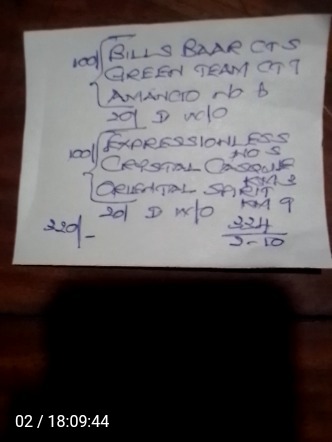 100/ { BILLS BAAR CTS
GREEN TEAM CT7
AMANCIO nb 6
20/ D w/o
100/ { EXPRESSIONLESS
NO S
CRYSTAL
KM 2
ORIENTAL SPIRIT
KM 9
20/ D w/o
220/-
224
2-10
02 / 18:09:44